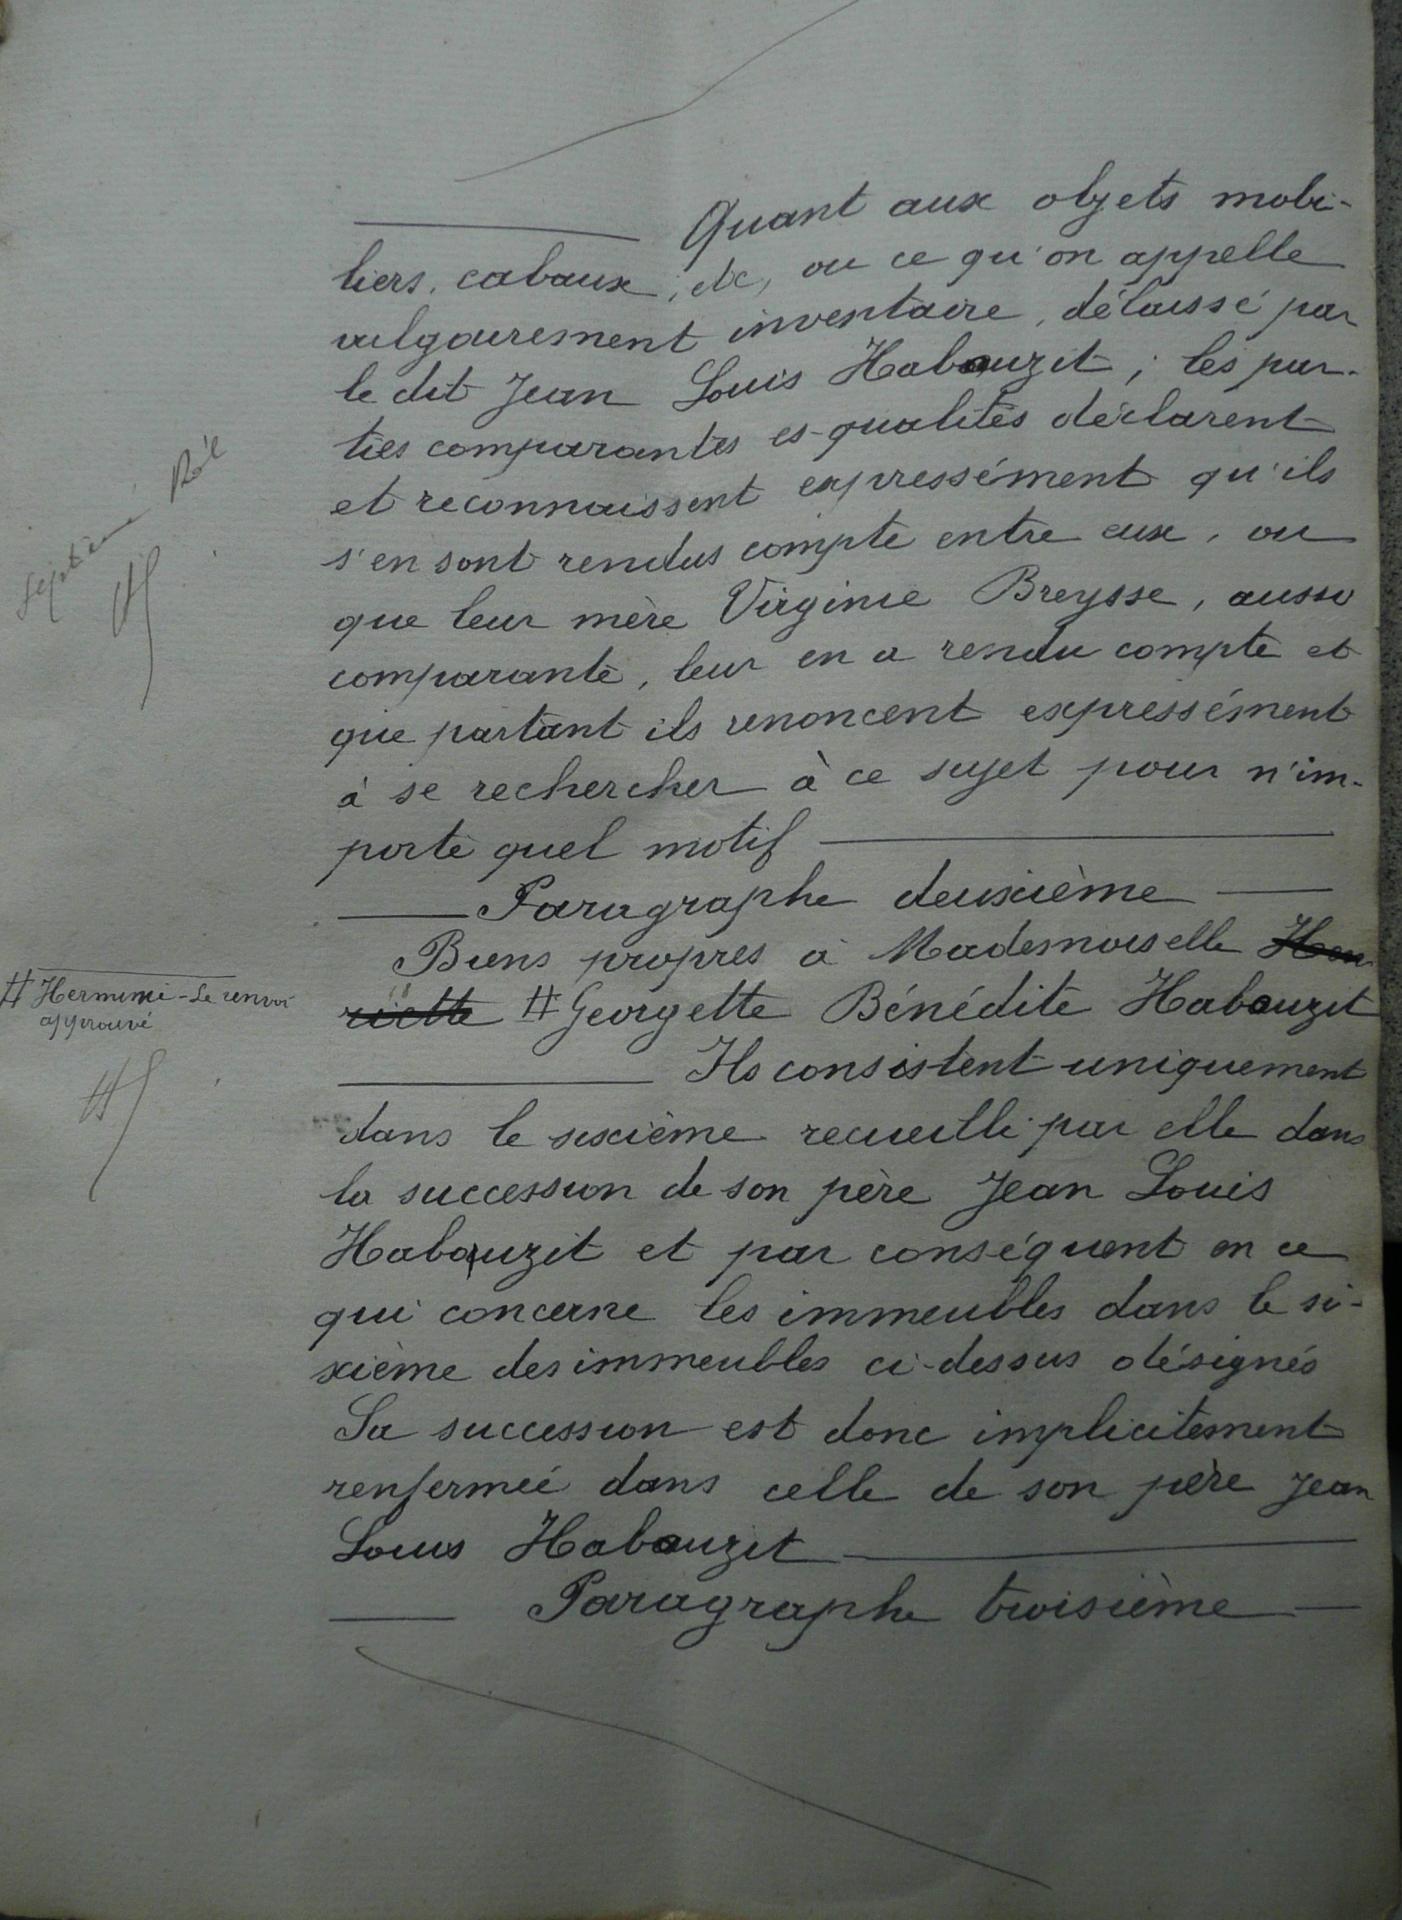 Quant aux objets mobi-
liers, cabaux, etc, ou ce qu'on appelle
vulgairement inventaire, délaissé par
le dit Jean Louis Habauzit ; les par-
ties comparantes es-qualités déclarent
et reconnaissent expressément qu'ils
s'en sont rendus compte entre eux, ou
que leur mère Virginie Breysse, aussi
comparante, leur en a rendu compte et
que partant ils renoncent expressément
à se rechercher à ce sujet pour n'im-
porte quel motif
Paragraphe deuxième
Biens propres à Mademoiselle Hen-
riette # Georgette Bénédite Habauzit
Ils consistent uniquement
dans le sixième recueilli par elle dans
la succession de son père Jean Louis
Habauzit et par conséquent en ce
qui concerne les immeubles dans le si-
xième des immeubles ci-dessus désignés
Sa succession est donc implicitement
renfermée dans celle de son père Jean
Louis Habauzit
Paragraphe troisième
Septième Rôle
# Herminie - Le renvoi
approuvé